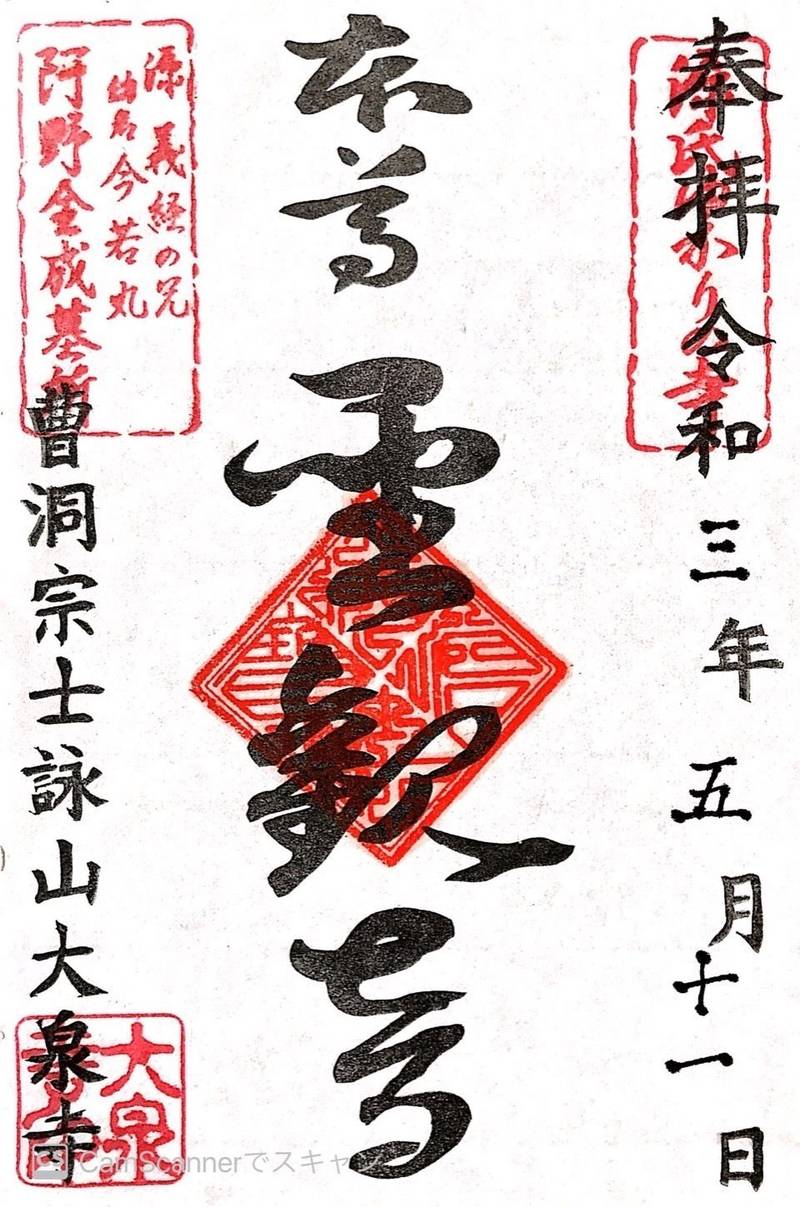 奉拝 令和三年五月十一日
源氏ゆかりの寺
本尊
聖観音
源義経の兄
幼名今若丸
阿野全成墓所
曹洞宗士詠山大泉寺
大泉
CamScannerでスキャン